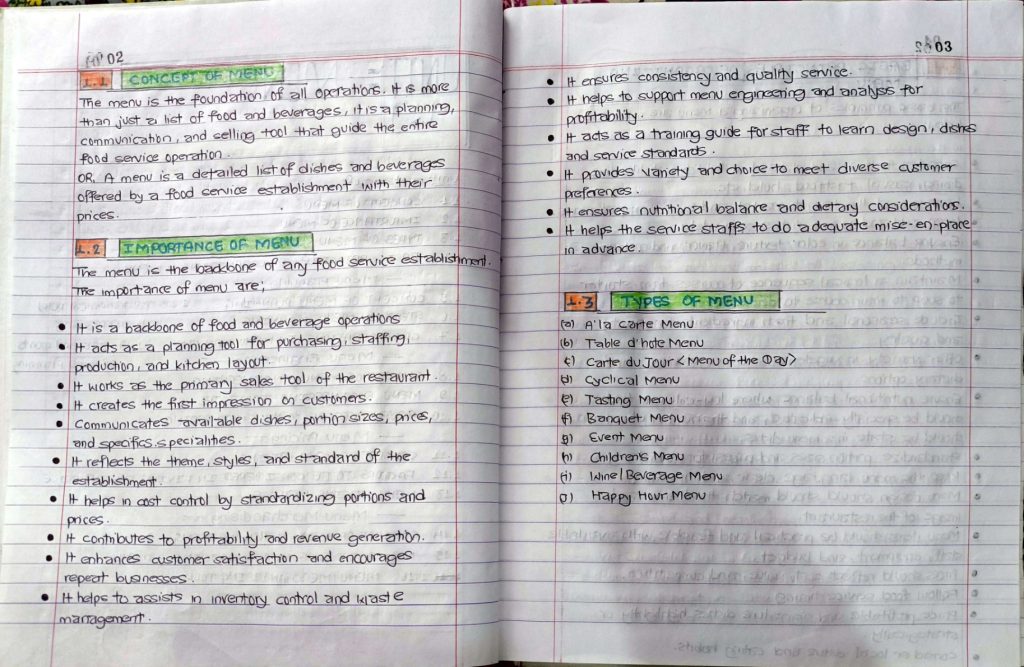 02
1.1 CONCEPT OF MENU
The menu is the foundation of all operations. It is more
than just a list of food and beverages, it is a planning,
communication, and selling tool that guide the entire
food service operation.
OR, A menu is a detailed list of dishes and beverages
offered by a food service establishment with their
prices.
1.2 IMPORTANCE OF MENU
The menu is the backbone of any food service establishment.
The importance of menu are;
• It is a backbone of food and beverage operations
• It acts as a planning tool for purchasing, staffing,
production, and kitchen layout.
• It works as the primary sales tool of the restaurant.
• It creates the first impression on customers.
• Communicates available dishes, portion sizes, prices,
and specifics, specialities.
• It reflects the theme, styles, and standard of the
establishment.
• It helps in cost control by standardizing portions and
prices.
• It contributes to profitability and revenue generation.
• It enhances customer satisfaction and encourages
repeat businesses.
• It helps to assists in inventory control and waste
management.
03
• It ensures consistency and quality service.
• It helps to support menu engineering and analysis for
profitability.
• It acts as a training guide for staff to learn design, dishes
and service standards.
• It provides variety and choice to meet diverse customer
preferences.
• It ensures nutritional balance and dietary considerations.
• It helps the service staffs to do adequate mise-en-place
in advance.
1.3 TYPES OF MENU
(a) A'la Carte Menu
(b) Table d'hote Menu
(c) Carte du Jour <Menu of the Day>
(d) Cyclical Menu
(e) Tasting Menu
(f) Banquet Menu
(g) Event Menu
(h) Children's Menu
(i) Wine/Beverage Menu
(j) Happy Hour Menu